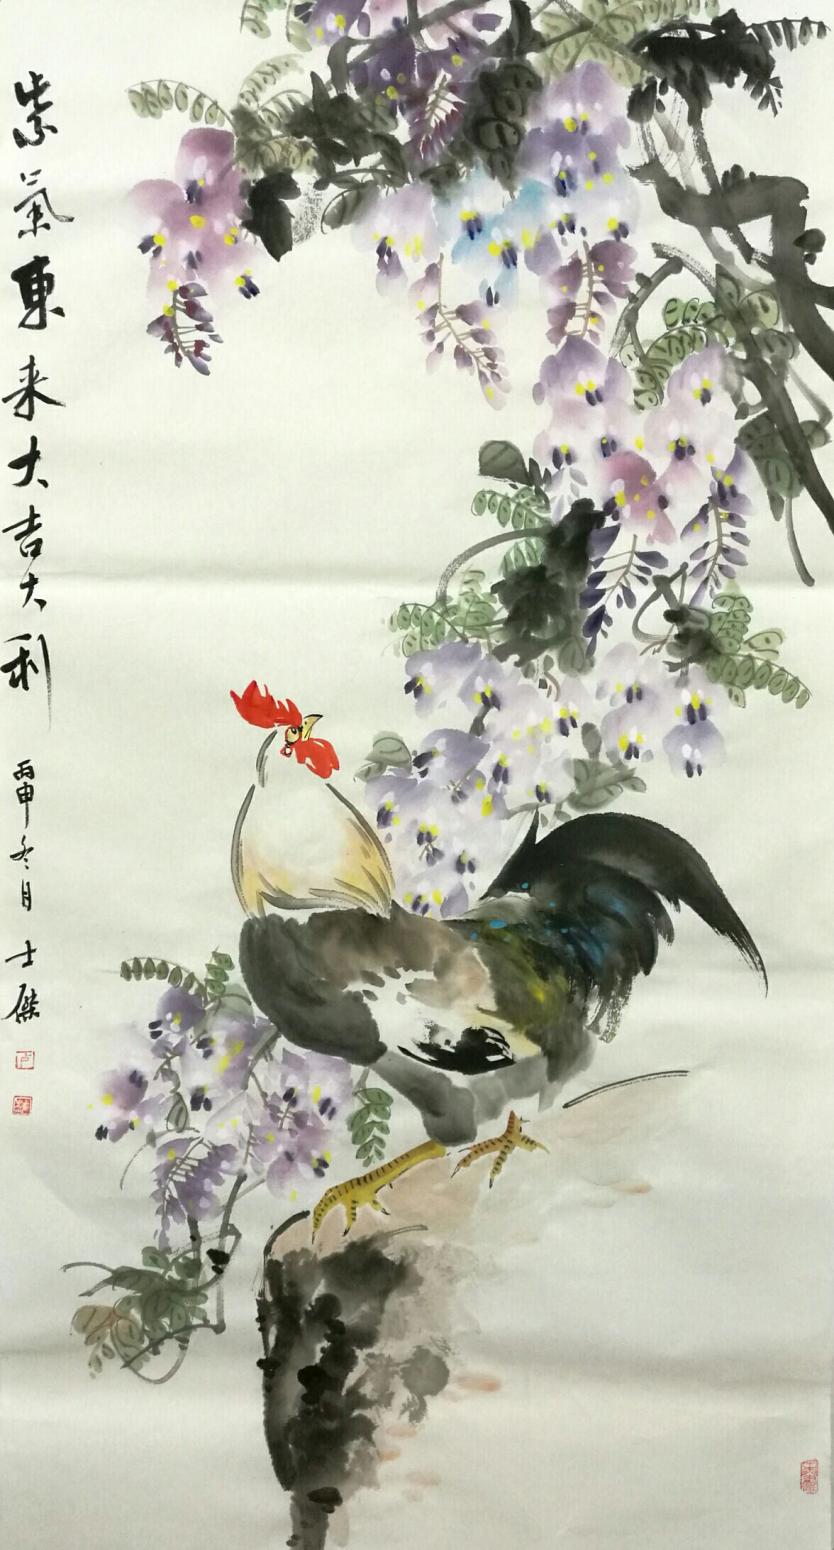 紫氣東来大吉大利
丙申冬月 士傑